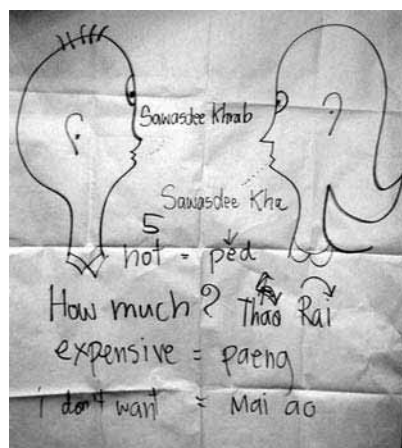 Sawasdee Khrab
Sawasdee Kha
5
hot = ped
How much? Thao Rai
expensive = paeng
i don't want = Mai ao